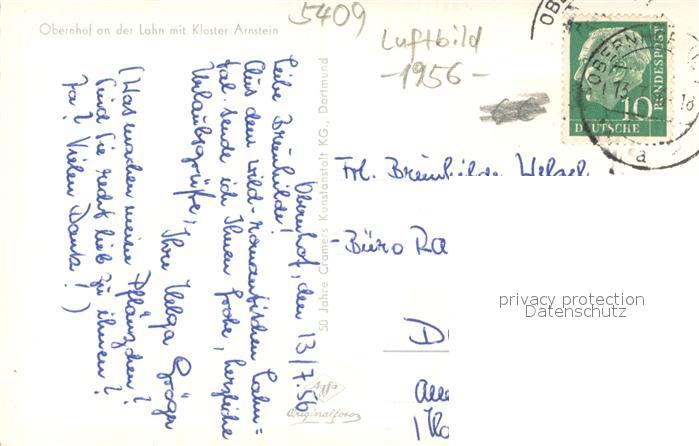 Obernhof an der Lahn mit Kloster Arnstein
5409
Luftbild
-1956-
Obernhof, den 13/7.56
Liebe Brünhilde!
Aus dem wild-romantischen Lahn=
tal sende ich Ihnen frohe, herzliche
Urlaubsgrüße, Ihre Helga
(Was machen meine Pflänzchen?
Sind Sie recht lieb zu ihnen?
Ja? Vielen Dank!)
50 Jahre Cramers Kunstanstalt KG., Dortmund
Agfa
Originalfoto
OBERNHOF
13
18
a
10
DEUTSCHE
BUNDESPOST
Frl. Brünhilde
Büro Ra
privacy protection
Datenschutz